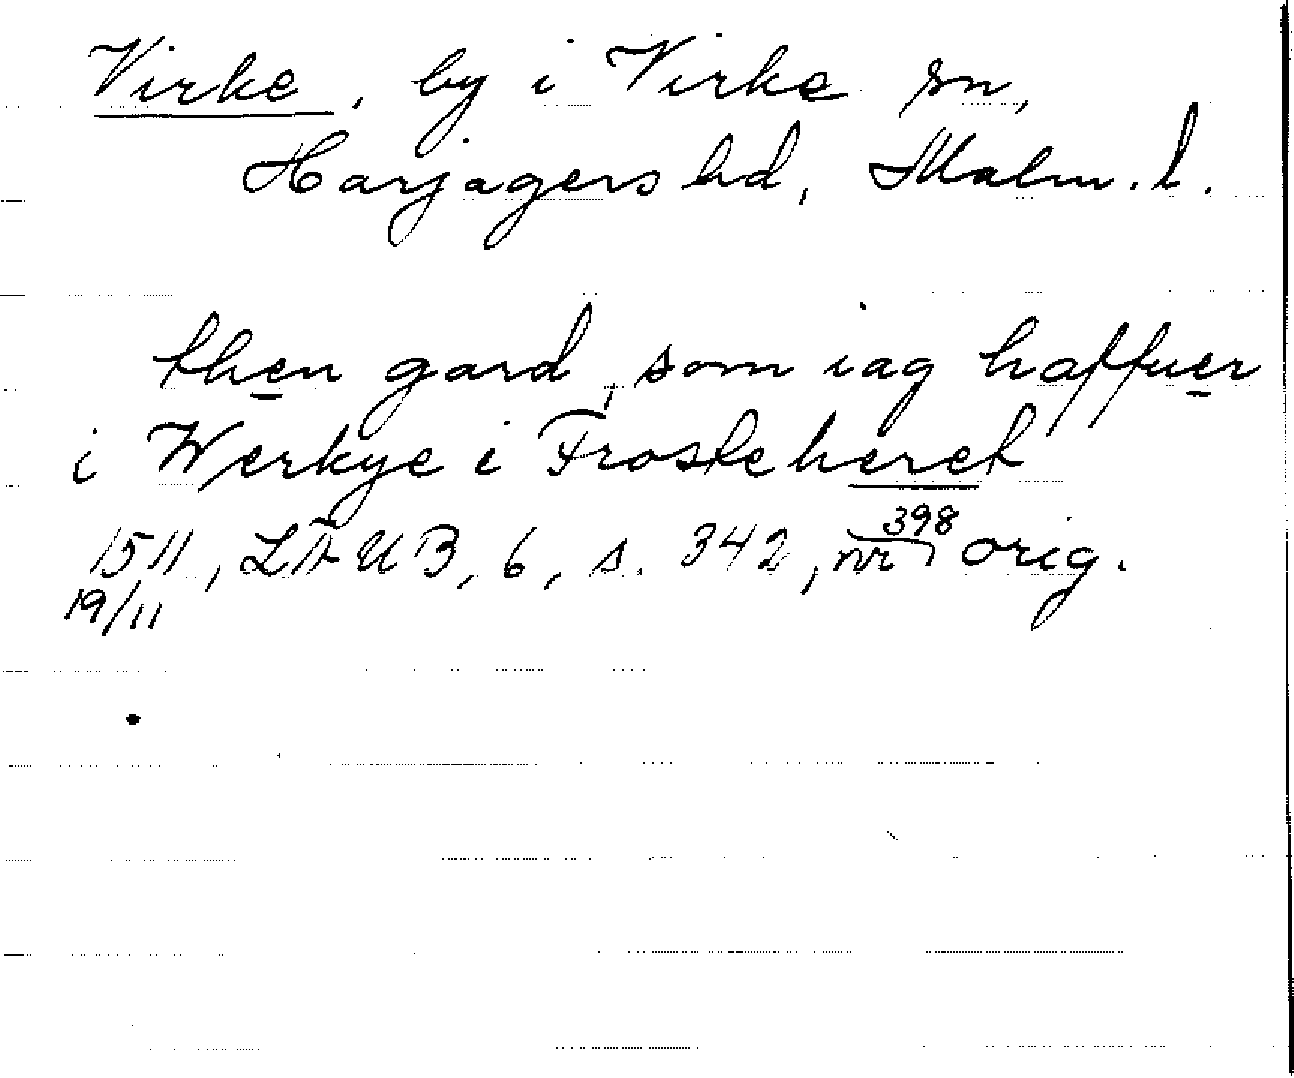 Virke, by i Virke sn,
Harjagers hd, Malm.l.
then gard, som iag haffuer
i Werkye i Frosteheret
1511, LÄUB, 6, s. 342, nr 398 orig.
19/11